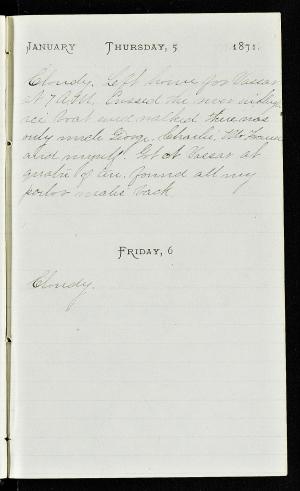 January Thursday, 5 1871.
Cloudy. Left home for Vassar
at 7 A.M. Crossed the river in
ice boat and walked there was
only uncle George, Charlie, Mr.
and myself. Got at Vassar at
of found all my
parlor mates back
Friday, 6
Cloudy.